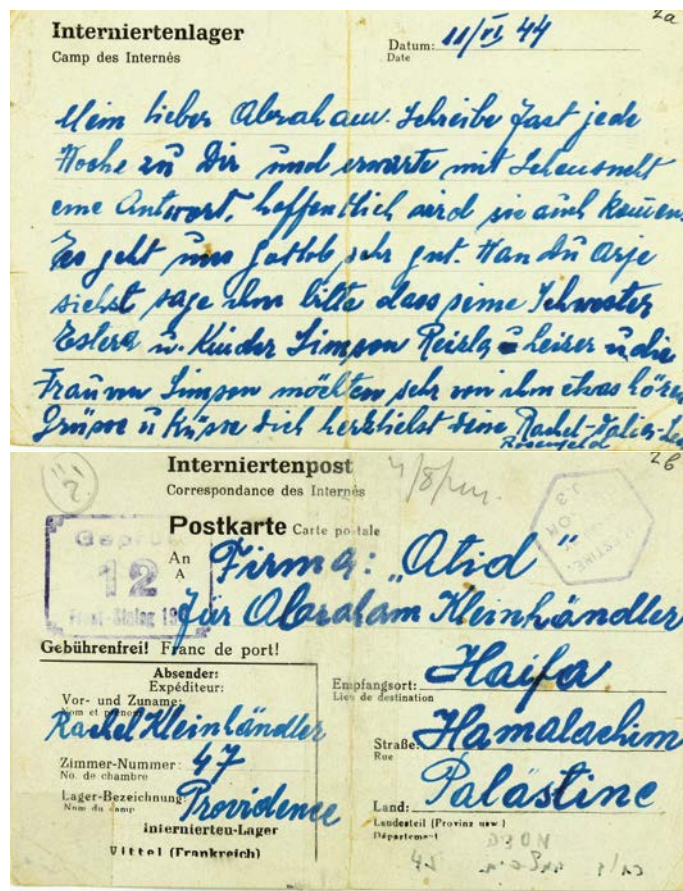 2a
Interniertenlager
Camp des Internés
Datum: 11/VI 44
Date
Mein lieber Abraham. Schreibe fast jede
Woche zu Dir und erwarte mit Sehensucht
eine Antwort, hoffentlich wird sie auch kommen.
Es geht uns gottlob sehr gut. Wan du Arje
siehst sage ihm bitte dass seine Schwester
Estera u. Kinder Simson Reizla u heizer u die
Frau von Simson möchten sehr von ihm etwas hören
Grüsse u Küsse Dich herzlichst deine Rachel
Rosenfeld
2b
Interniertenpost
Correspondance des Internés
Postkarte Carte postale
Geprüft
12
Front-Stalag 19
An
A
Firma: „Atid"
für Abraham Kleinhändler
Gebührenfrei! Franc de port!
Absender:
Expéditeur:
Vor- und Zuname:
Nom et prénom
Rachel Kleinhändler
Zimmer-Nummer: 47
No. de chambre
Lager-Bezeichnung: Providence
Nom du camp
Internierten-Lager
Vittel (Frankreich)
Empfangsort: Haifa
Lieu de destination
Straße: Hamalachim
Rue
Land: Palästine
Landesteil (Provinz usw.)
Département